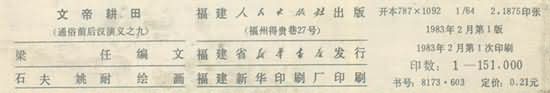 文帝耕田
(通俗前后汉演义之九)
梁任编文
石夫姚耐绘画
福建人民出版社出版
(福州得贵巷27号)
福建省新华书店发行
福建新华印刷厂印刷
开本787×1092 1/64 2.1875印张
1983年2月第1版
1983年2月第1次印刷
印数:1—151.000
书号:8173·603 定价:0.21元